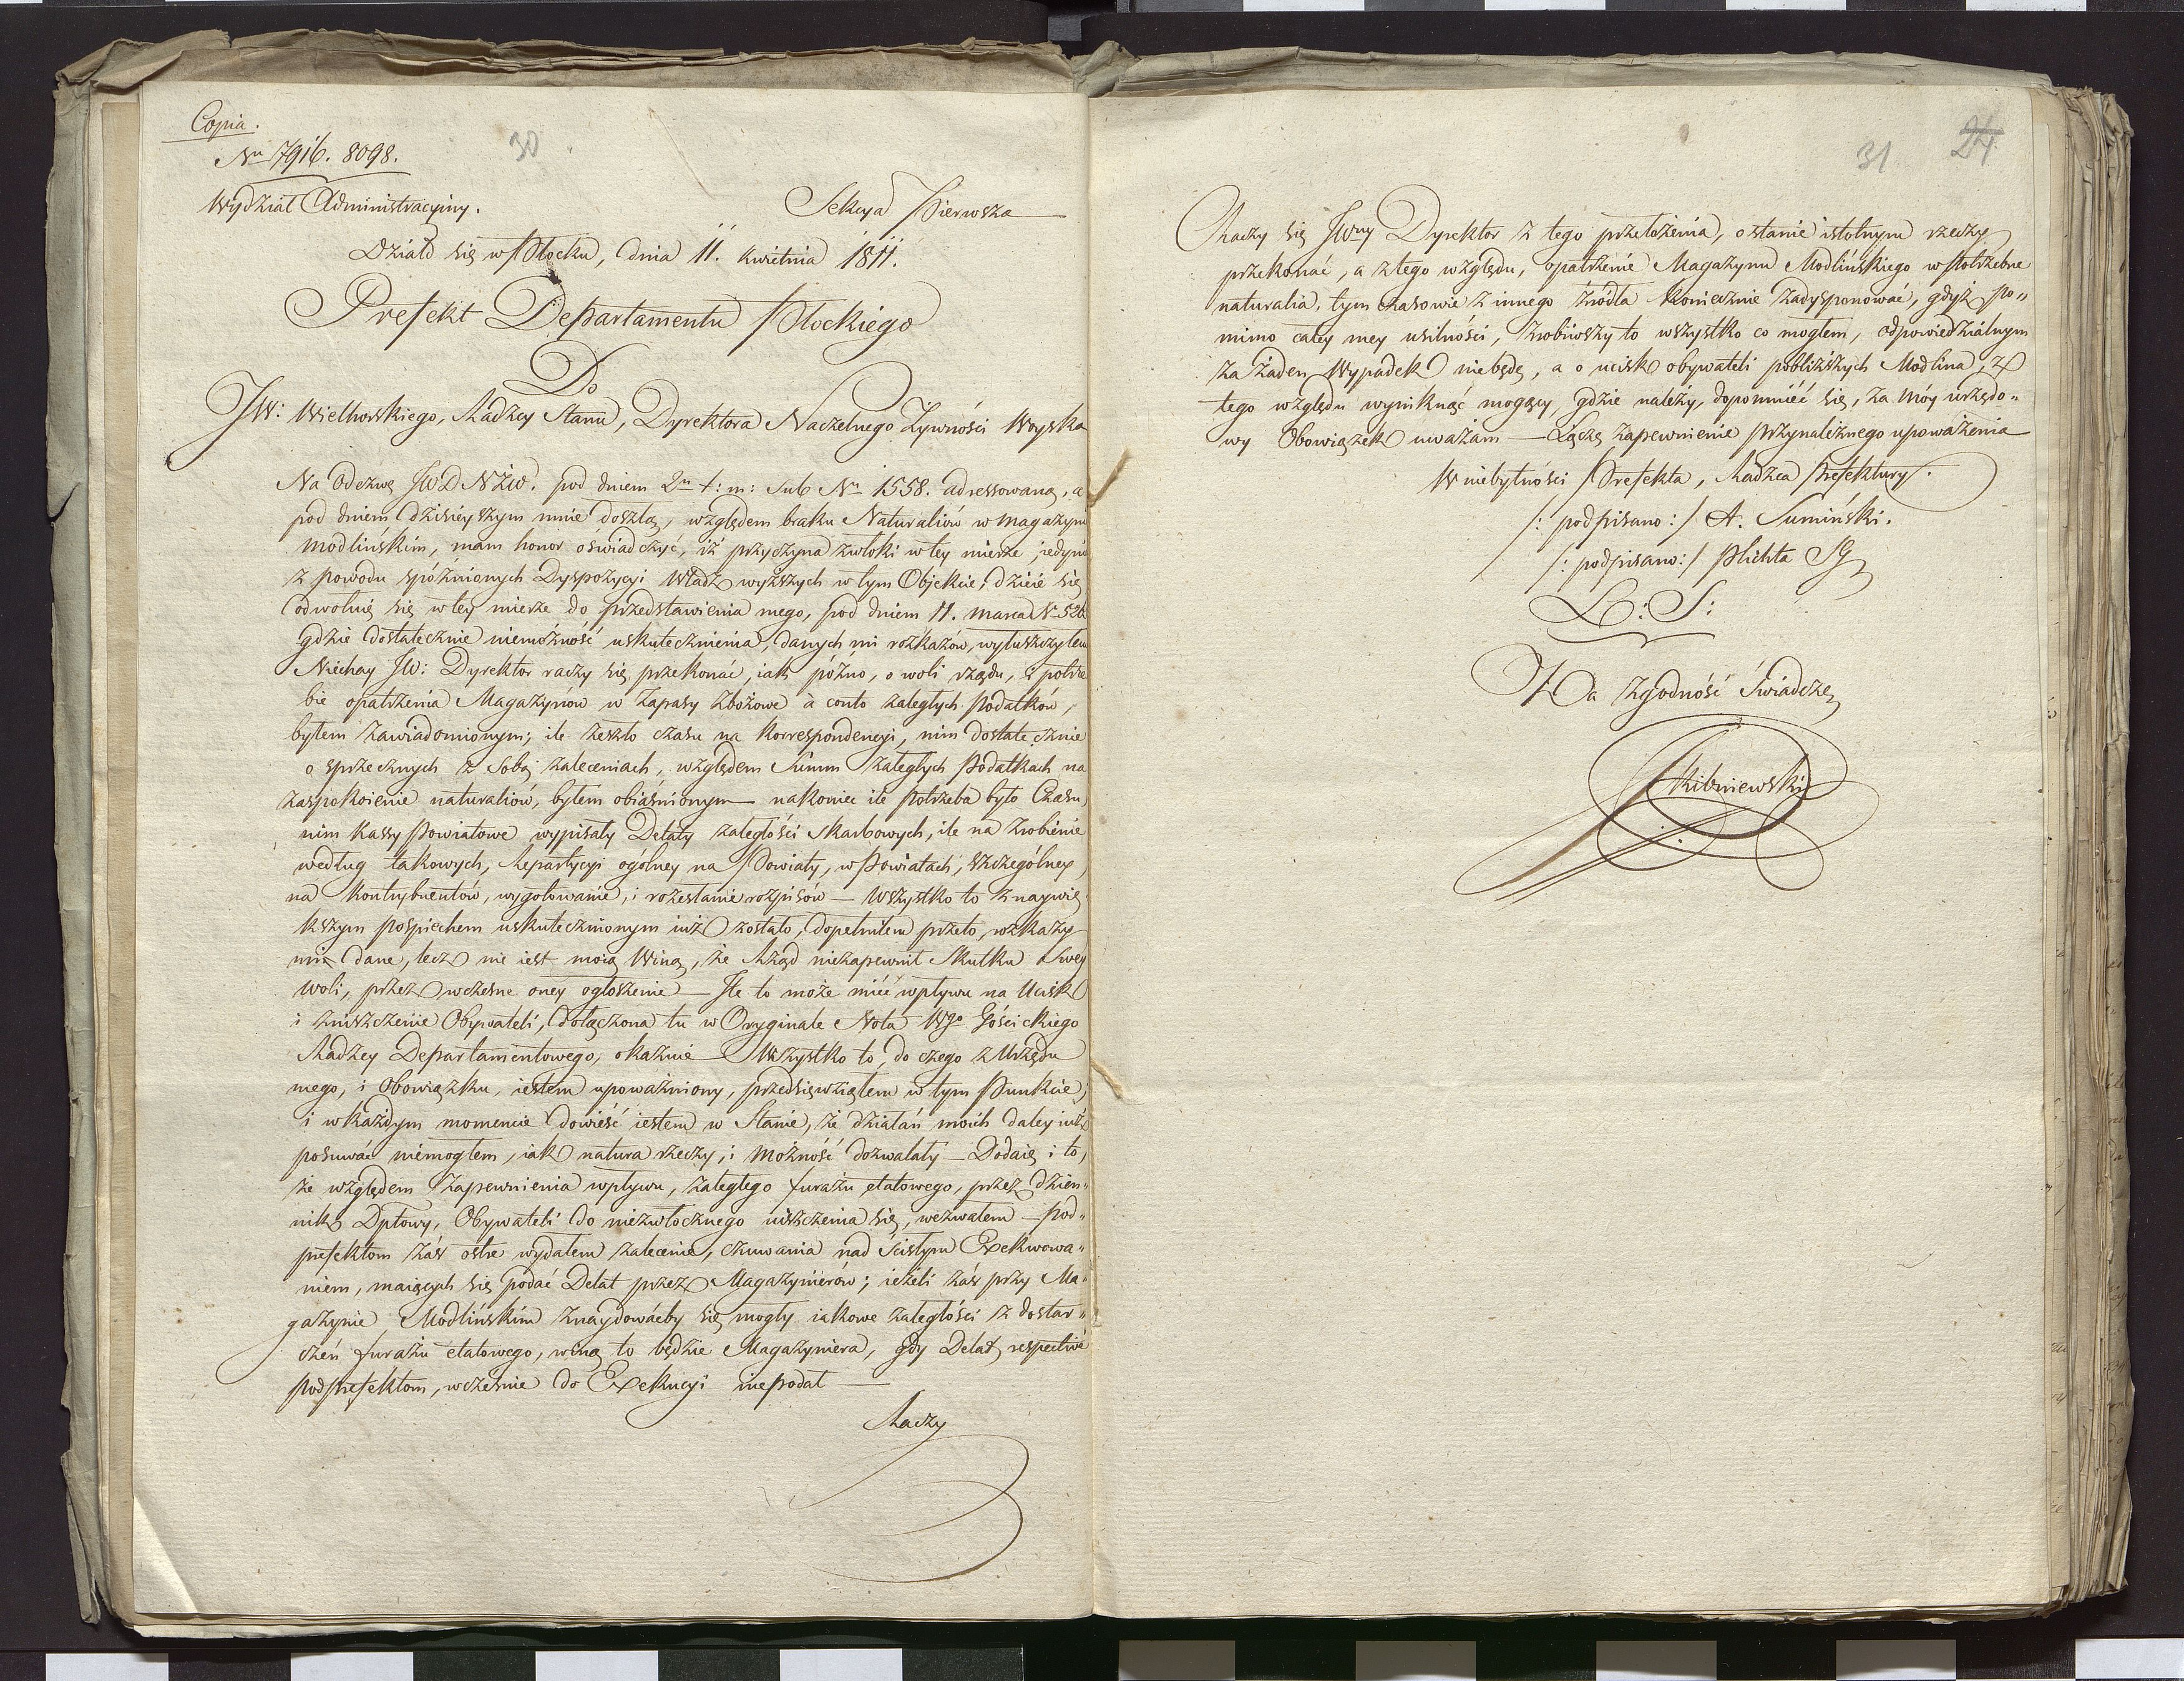 Copia.
30
Nr 7916. 8098.
Wydział Administracyiny.
Sekcya Pierwsza
Działo się w Płocku, dnia 11. kwietnia 1811.
Prefekt Departamentu Płockiego
Do
JW: Wielhorskiego, Radzcy Stanu, Dyrektora Naczelnego Żywności Woyska
Na Odezwę JWDNŻw. pod dniem 2m t: m: sub Nr 1558. adressowaną, a
pod dniem dzisieyszym mnie doszłą, względem braku Naturaliów w magazynie
modlińskim, mam honor oświadczyć, iż przyczyna zwłoki w tey mierze, jedynie
z powodu spóźnionych Dyspozycyi Władz wyższych w tym Objekcie, dzieie się
odwołuię się w tey mierze do przedstawienia mego, pod dniem 11. marca N 526
gdzie dostatecznie niemożność uskutecznienia, danych mi rozkazów, wyłuszczyłem
Niechay JW: Dyrektor raczy się przekonać, iak późno, o woli rządu, i potrze
bie opatrzenia Magazynów w Zapasy zbożowe à conto zaległych Podatków,
byłem zawiadomionym; ile zeszło czasu na korrespondencyi, nim dostatecznie
o sprzecznych z sobą zaleceniach, względem Summ zaległych Podatkach na
zaspokoienie naturaliów, byłem obiaśnionym — nakoniec ile potrzeba było Czasu
nim Kassy Powiatowe wypisały Delaty zaległości Skarbowych, ile na zrobienie
według takowych, Repartycyi ogólney na Powiaty, w Powiatach, szczególney
na Kontrybuentów, wygotowanie, i rozesłanie rozpisów — Wszystko to z naywię
kszym pospiechem uskutecznionym iuż zostało, dopełniłem przeto, rozkazy
mi dane, lecz nie iest moią Winą, że Rząd niezapewnił Skutku Swey
woli, przez wczesne oney ogłoszenie — Ile to może mieć wpływu na Ucisk
i zniszczenie Obywateli, dołączona tu w Oryginale Nota Wgo Gościckiego
Radzcy Departamentowego, okazuie — Wszystko to, do czego z Urzędu
mego, i Obowiązku, iestem upoważniony, przedsięwziąłem w tym Punkcie,
i w każdym momencie dowieść iestem w Stanie, że działań moich daley iuż
posuwać niemogłem, iak natura rzeczy, i możność dozwalały — Dodaię i to,
że względem zapewnienia wpływu, zaległego furażu etatowego, przez dzien„
nik Dptowy, Obywateli do niezwłocznego uiszczenia się, wezwałem — Pod„
prefektom zaś ostre wydałem zalecenie, czuwania nad ścisłym Exekwowa„
niem, maiących się podać Delat przez Magazynierów; ieżeli zaś przy Ma„
gazynie Modlińskim znaydowaćby się mogły iakowe zaległości z dostar„
czeń furażu etatowego, winą to będzie Magazyniera, gdy Delat respective
podprefektom, wcześnie do Exekucyi niepodał —
Raczy
31
24
Raczy się JWny Dyrektor z tego przełożenia, o stanie istotnym rzeczy
przekonać, a z tego względu, opatrzenie Magazynu Modlińskiego w potrzebne
naturalia, tym czasowie z innego źródła koniecznie zadysponować, gdyż po„
mimo całey mey usilności, zrobiwszy to wszystko co mogłem, odpowiedzialnym
za żaden Wypadek niebędę, a o ucisk obywateli pobliższych Modlina, z
tego względu wyniknąć mogący, gdzie należy, dopomnieć się, za móy urzędo„
wy Obowiązek uważam — Łączę zapewnienie przynależnego upoważenia
W niebytności Prefekta, Radzca Prefektury.
/: podpisano :/ A. Sumiński.
/: podpisano :/ Plichta SG
L: S:
Za zgodność Świadczę
Skibniewski